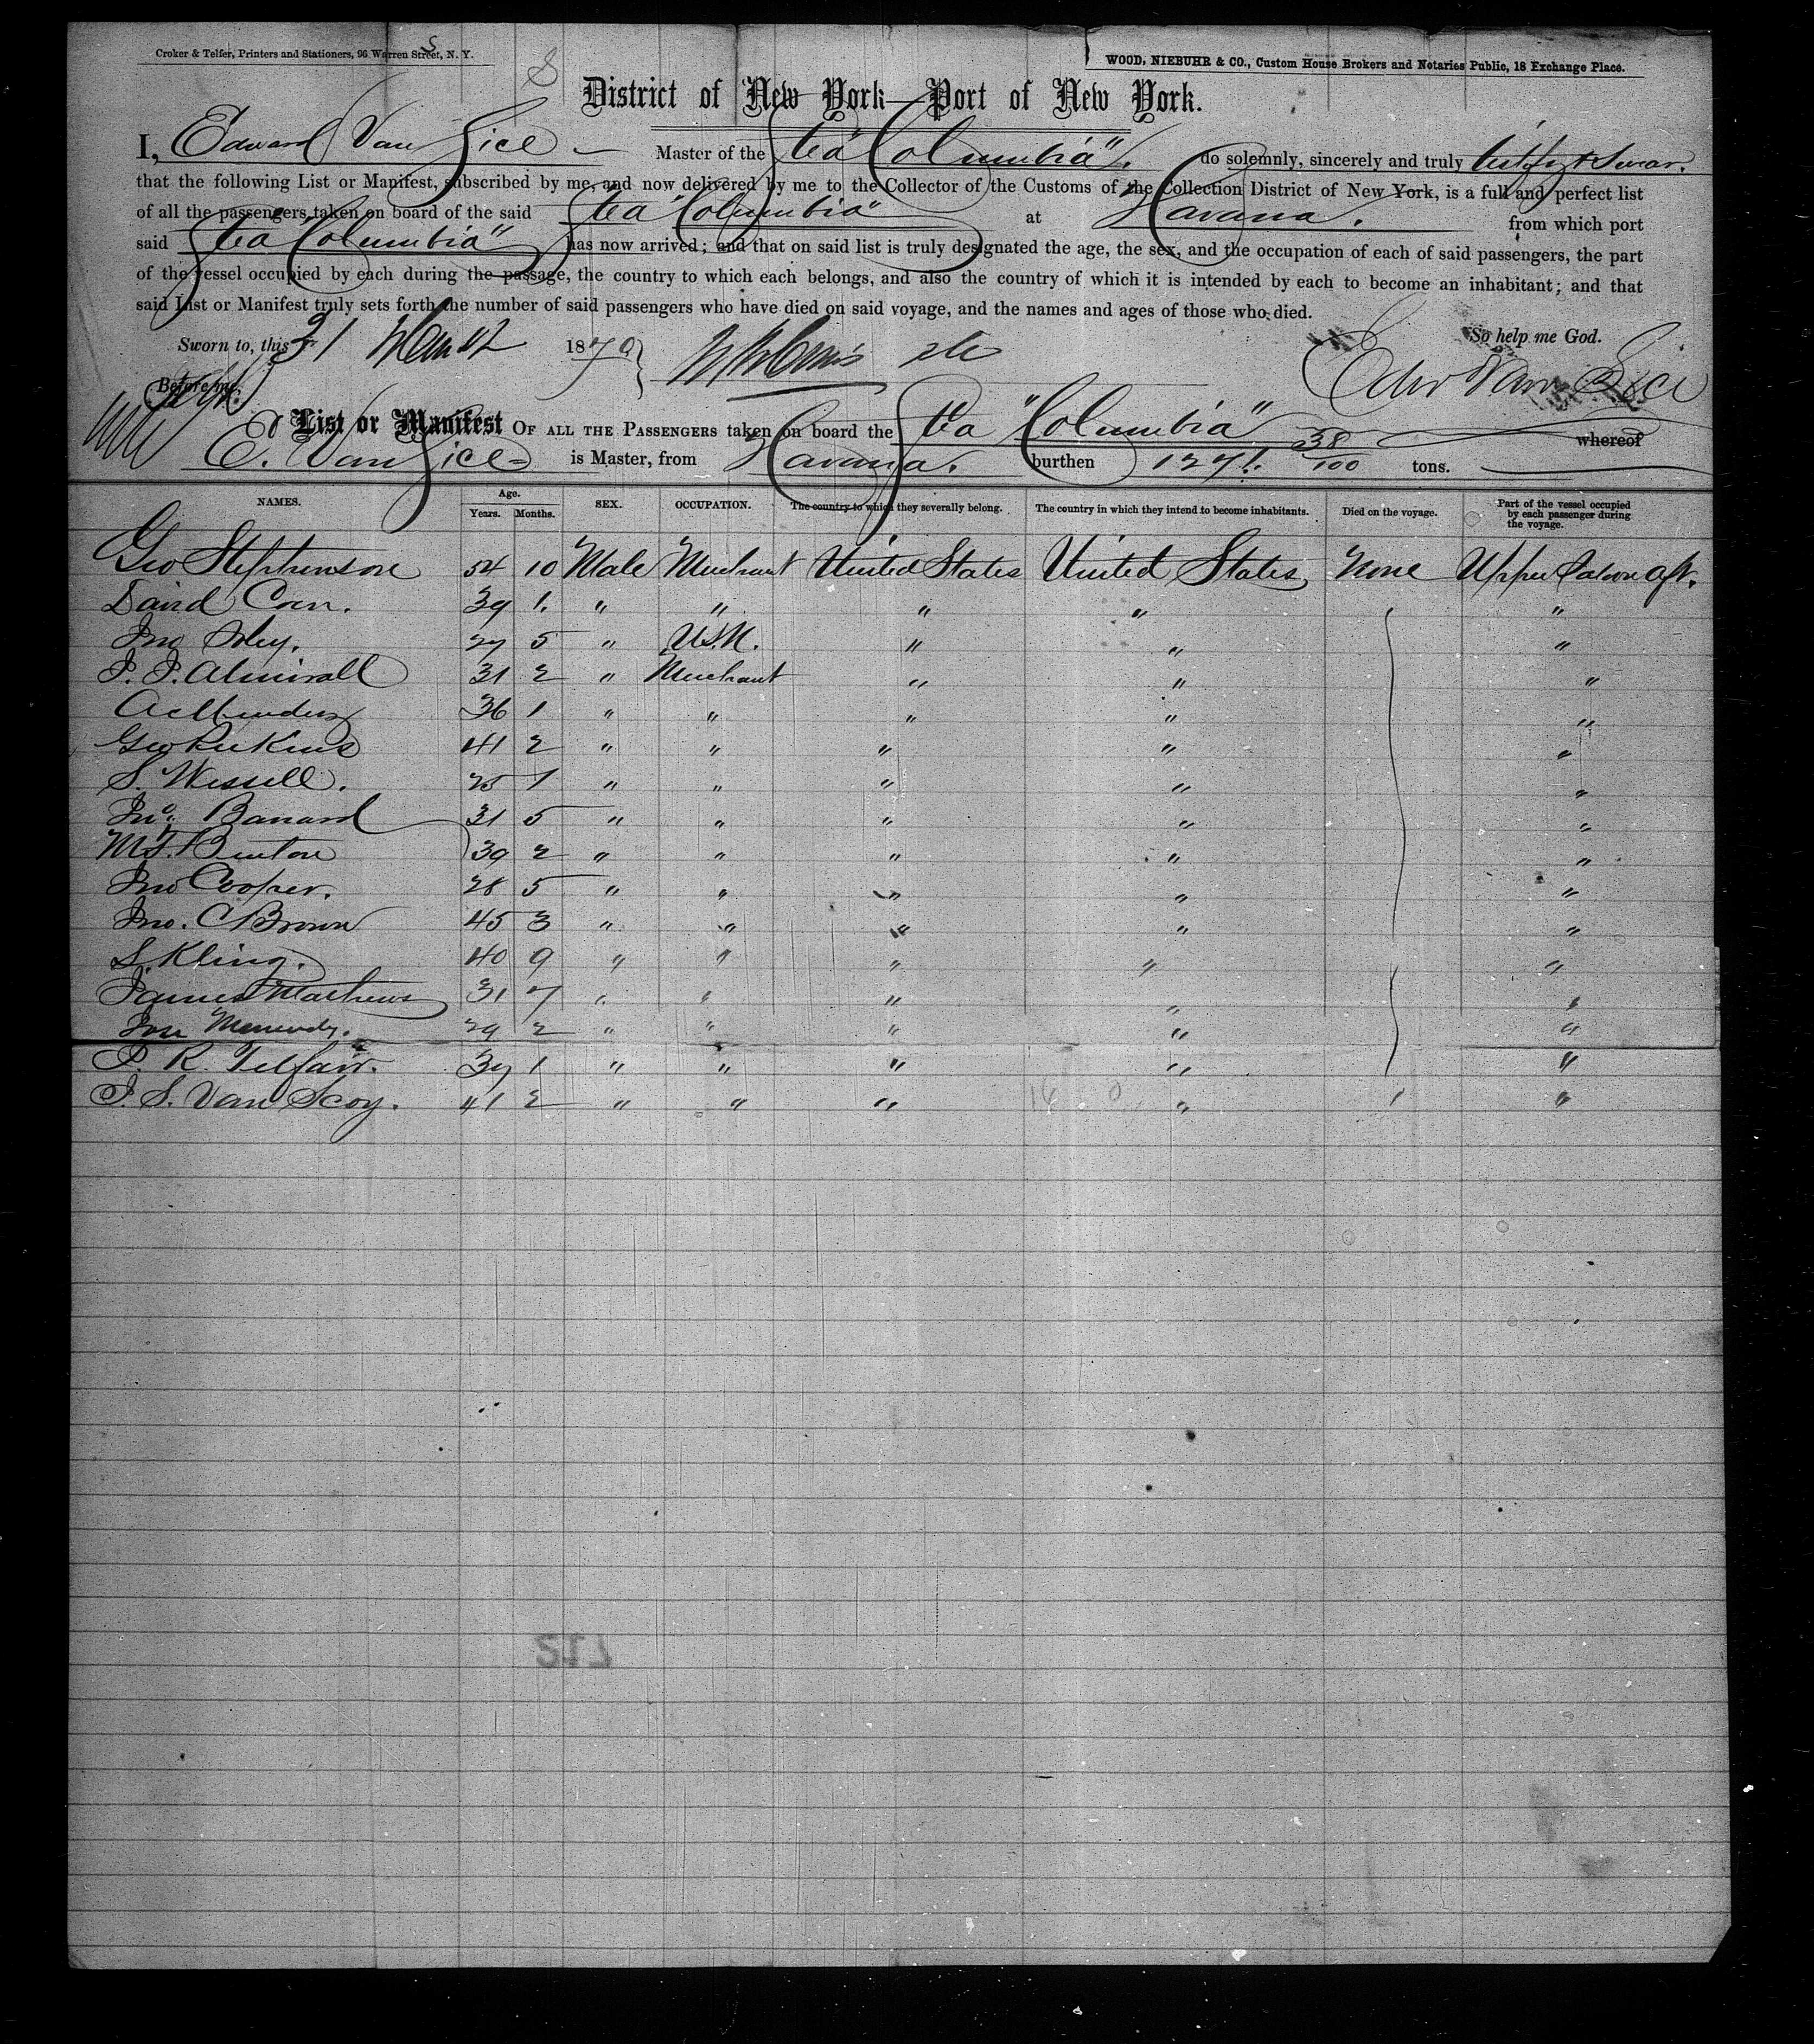 Croker & Telfer, Printers and Stationers, 96 Warren Street, N. Y.
WOOD, NIEBUHR & CO., Custom House Brokers and Notaries Public, 18 Exchange Place.
District of New York—Port of New York.
I, Edward Van Sice Master of the Stea "Columbia". do solemnly, sincerely and truly testify & Swear.
that the following List or Manifest, subscribed by me, and now delivered by me to the Collector of the Customs of the Collection District of New York, is a full and perfect list
of all the passengers taken on board of the said Stea "Columbia" at Havana. from which port
said Stea Columbia" has now arrived; and that on said list is truly designated the age, the sex, and the occupation of each of said passengers, the part
of the vessel occupied by each during the passage, the country to which each belongs, and also the country of which it is intended by each to become an inhabitant; and that
said List or Manifest truly sets forth the number of said passengers who have died on said voyage, and the names and ages of those who died.
So help me God.
Sworn to, this 31 March 1870
Edw Van Sice
Before me,
List or Manifest OF ALL THE PASSENGERS taken on board the Stea "Columbia" whereof
E. Van Sice is Master, from Havana. burthen 1271. 38/100 tons.
NAMES. Age. Years. Months. SEX. OCCUPATION. The country to which they severally belong. The country in which they intend to become inhabitants. Died on the voyage. Part of the vessel occupied by each passenger during the voyage.
Geo Stephenson 54 10 Male Merchant United States United States None Upper Saloon aft.
David Coen. 39 1. " " " " "
Jno 27 5 " U.S.N. " " "
P. P. Almirall 31 2 " Merchant " " "
36 1 " " " " "
Geo Perkins 41 2 " " " " "
S. Wessell. 25 1 " " " " "
Jno. Banard 31 5 " " " " "
M. F. Benton 39 2 " " " " "
Jno Cooper. 28 5 " " " " "
Jno. C Brown 45 3 " " " " "
S. Kling. 40 9 " " " " "
James Mathews 31 7 " " " " "
Jose 29 2 " " " " "
P. R. Telfair. 39 1 " " " " "
J. S. Van Scoy. 41 2 " " " " "
16 0
212